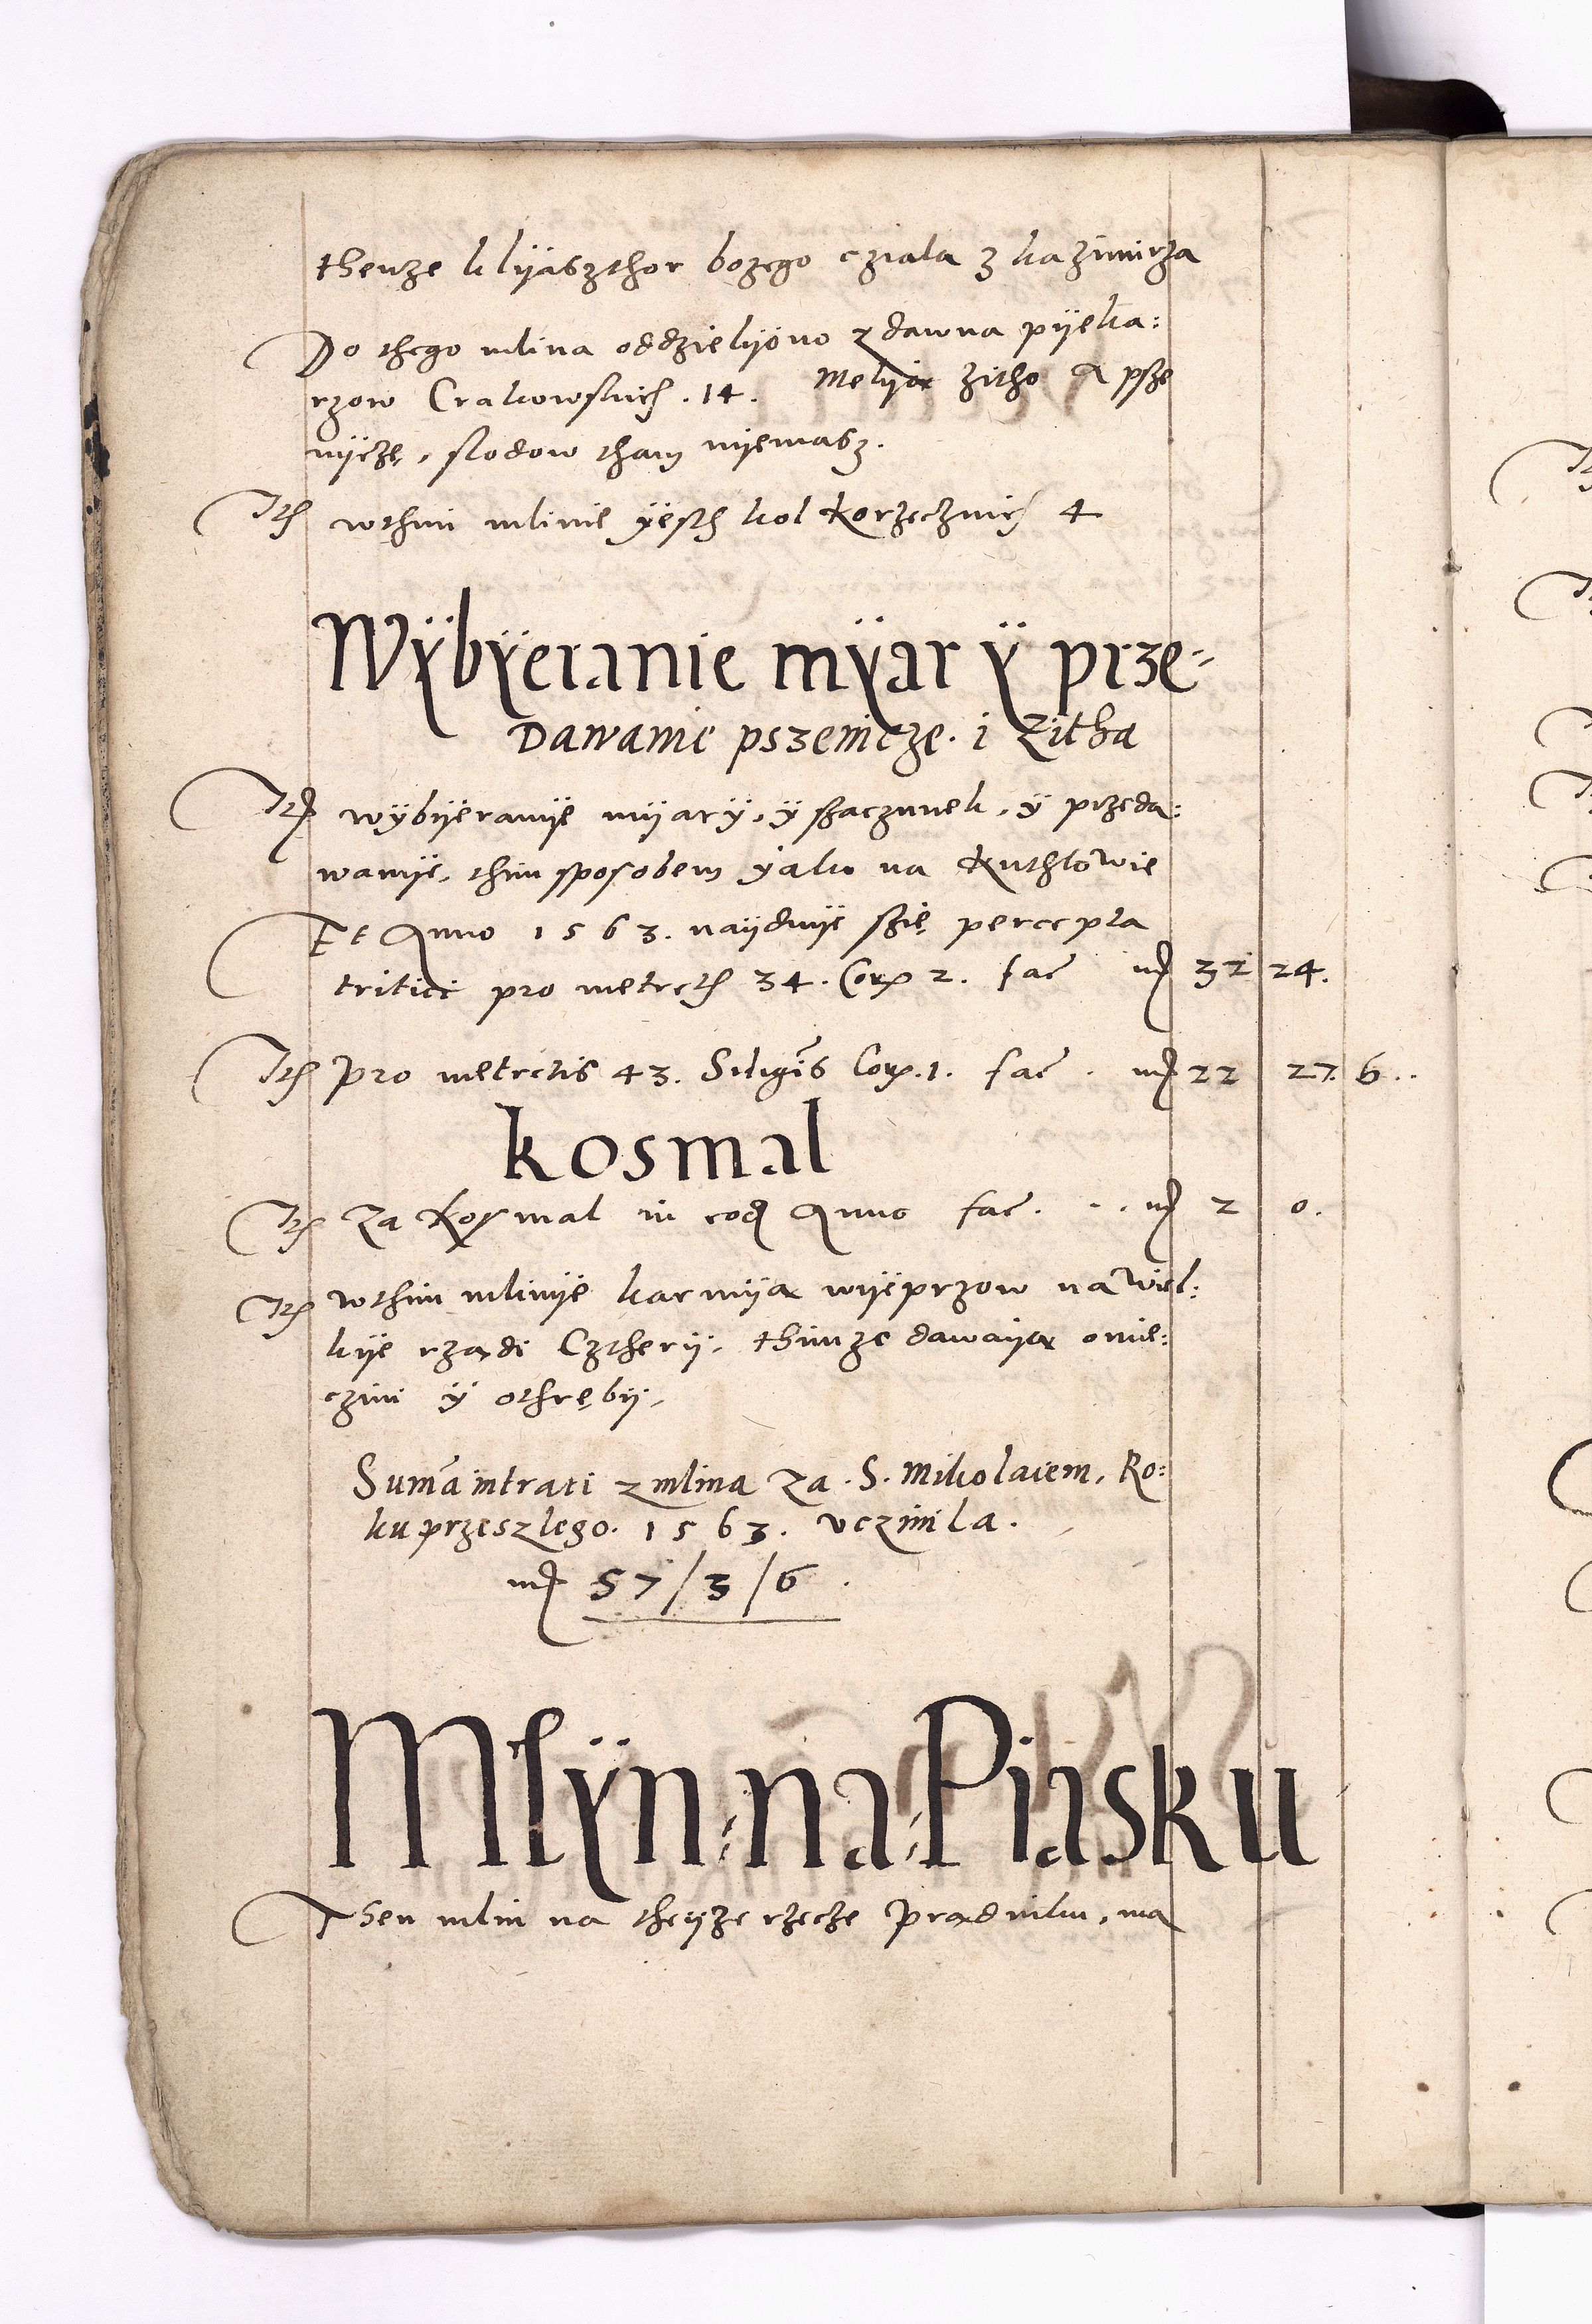 thenze klyasszthor bozego cziala z kazimirza
Do thego mlina oddzielyono zdawna pyeka:
rzow Crakowskich . 14 . Melyą zitho A psze
nycze, slodow tham nyemasz.
Ith wthim mlinie yesth kol korzecznich 4
Wÿbÿeranie mÿar ÿ prze-
Dawanie pszenicze. i Zitha
Itm wÿbÿeranye mÿarÿ, ÿ szaczunek, ÿ przeda:
wanye, thim sposobem yako na Kuthlowie
Et Anno 1563. nayduye szię percepta
tritici pro metretis 34. Cor 2. fac mr 32 24.
Ith pro metretis 43. Siliginis Cor. 1. fac . mr 22 27. 6..
kosmal
Ith Za Kosmal in eod Anno fac. .. mr 2 0.
Ith wthim mlinye karmyą wyeprzow na Wiel:
kye rządi Cztherÿ, thimze dawayą omie:
czini ÿ othrębÿ,
Suma intrati z mlina Za . S. Mikolaiem, Ro:
ku przeszlego. 1563. vczinila.
mr 57/3/6 .
Mlÿn na Piasku
Then mlin na theyze rzecze Prądniku, ma